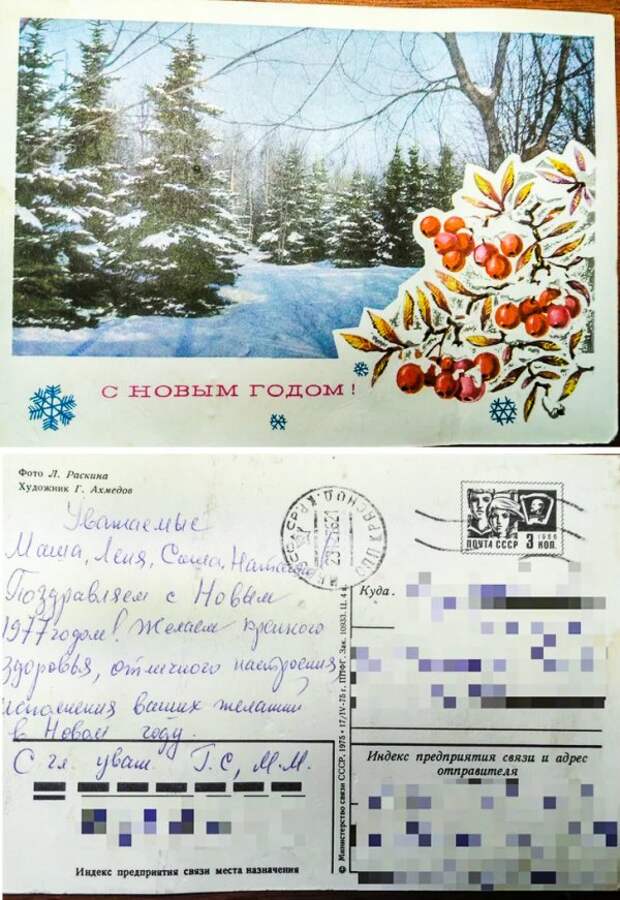 С НОВЫМ ГОДОМ!
Фото Л. Раскина
Художник Г. Ахмедов
Уважаемые
Маша, Леня, Саша, Наташа
Поздравляем с Новым
1977 годом! Желаем крепкого
здоровья, отличного настроения,
исполнения ваших желаний
в Новом году.
С гл уваж Г.С, М.М.
ПОЧТА СССР 3 КОП.
1966
Куда.
Индекс предприятия связи и адрес
отправителя
Индекс предприятия связи места назначения
© Министерство связи СССР, 1975 • 17/IV-75 г. ППФГ. Зак. 10933. Ц. 4 к.